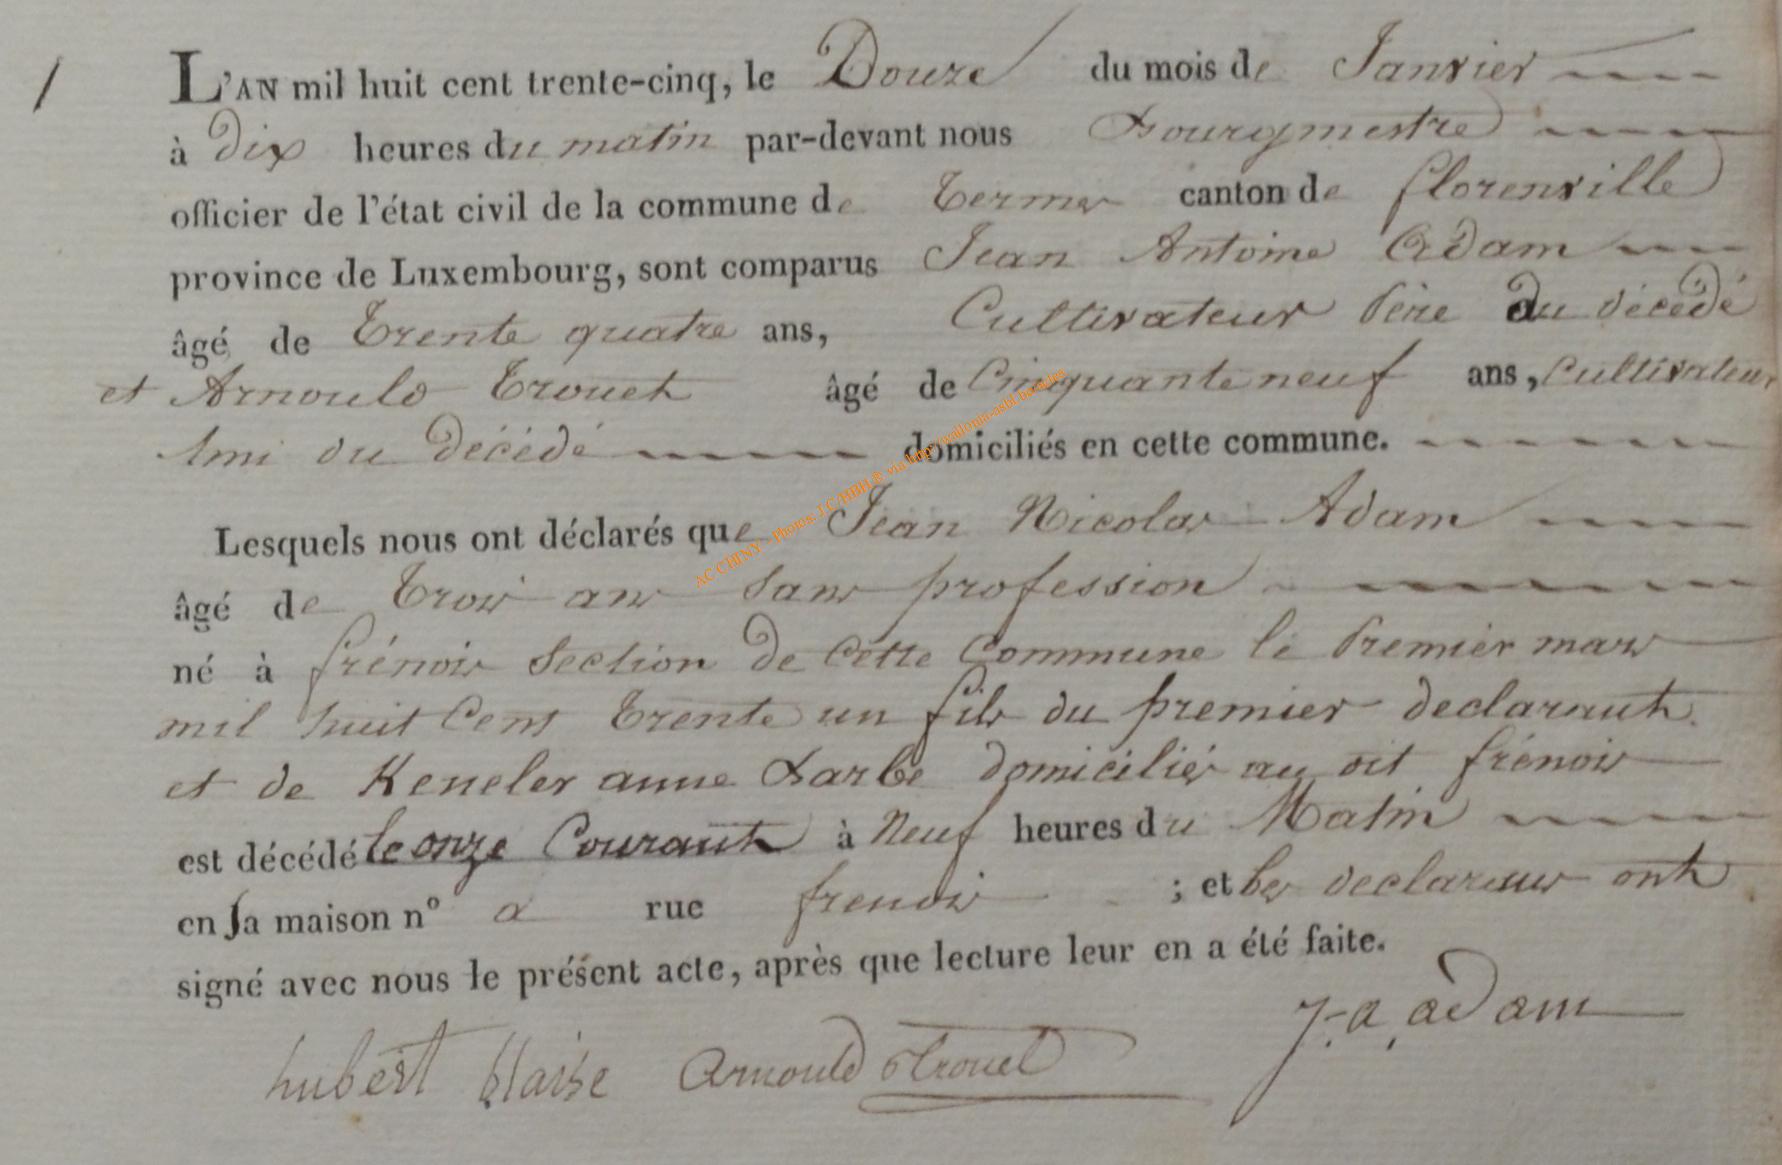 1
L'AN mil huit cent trente-cinq, le Douze du mois de Janvier
à dix heures du matin par-devant nous Bourgmestre
officier de l'état civil de la commune de Termes canton de florenville
province de Luxembourg, sont comparus Jean Antoine Adam
âgé de Trente quatre ans, Cultivateur Père du décédé
et Arnould Trouet âgé de Cinquante neuf ans, Cultivateur
Ami du décédé domiciliés en cette commune.
Lesquels nous ont déclarés que Jean Nicolas Adam
âgé de Trois ans sans profession
né à frénois Section de Cette Commune le Premier mars
mil huit Cent Trente un fils du premier declarant
et de Keneler anne Barbe domiciliés au dit frénois
est décédé le onze Courant à Neuf heures du Matin
en sa maison n° a rue frenois ; et les declarans ont
signé avec nous le présent acte, après que lecture leur en a été faite.
hubert blaise Arnould Trouet J. a. adam
AC CHINY - Photos J C HBH © via http://wallonia-asbl.be/actes